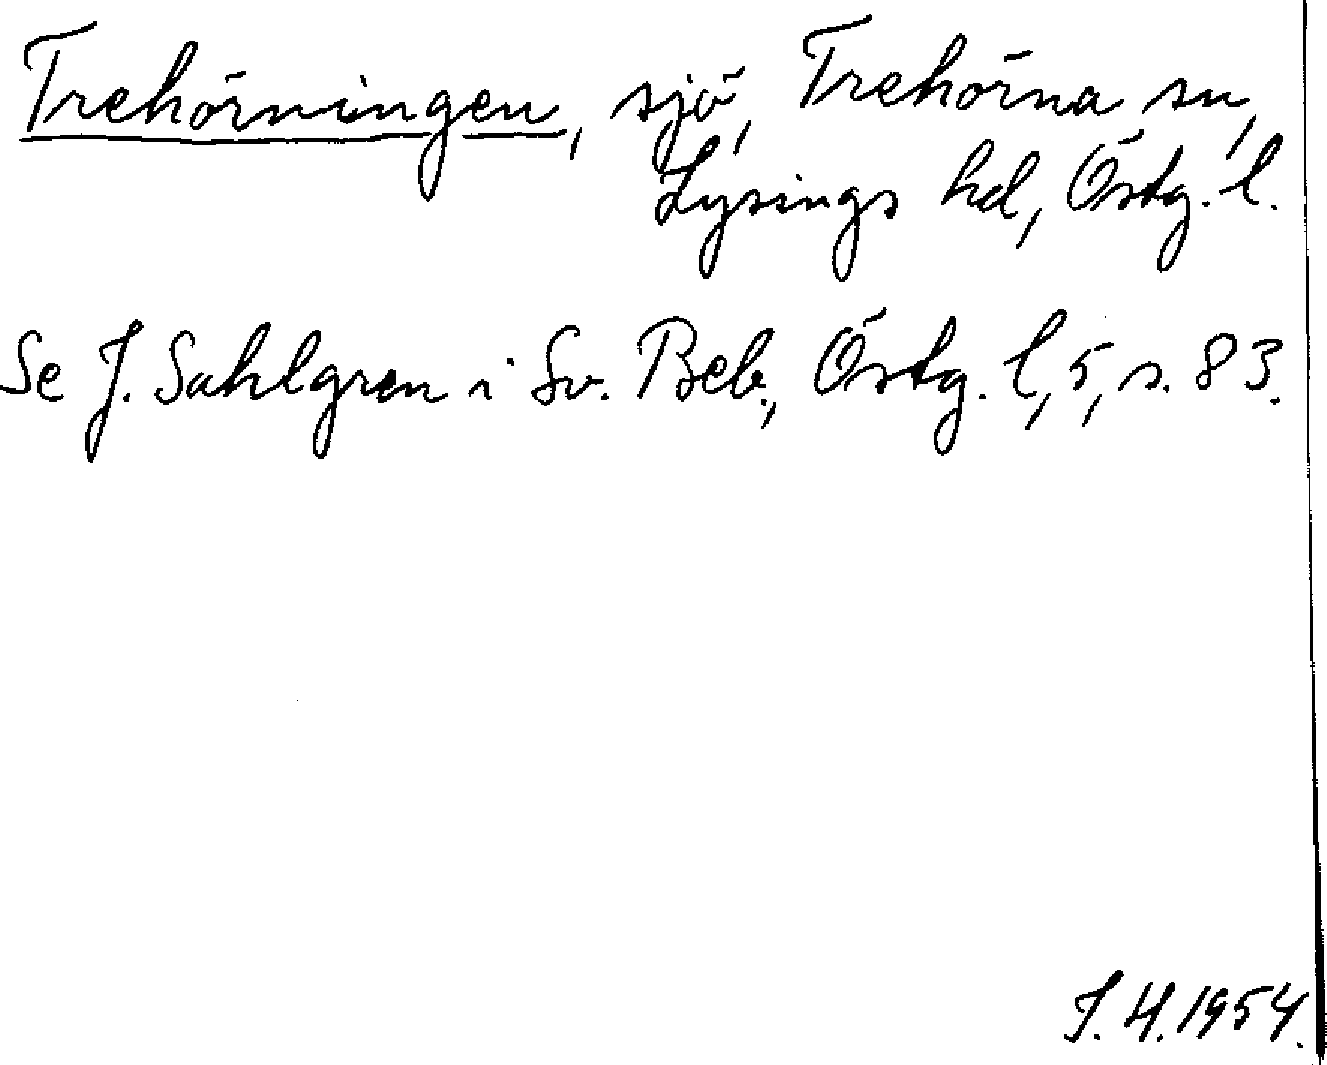 Trehörningen, sjö, Trehörna sn,
Lysings hd, Östg. l.
Se J. Sahlgren i Sv. Beb., Östg. l, 5, s. 83.
I. H. 1954.